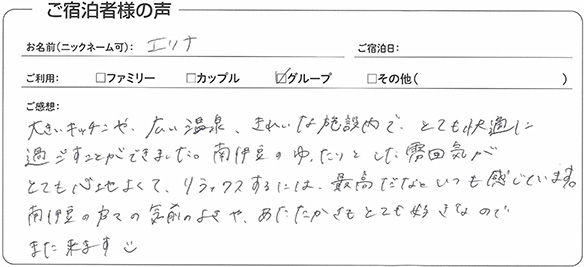 ご宿泊者様の声
お名前(ニックネーム可): エリナ ご宿泊日:
ご利用: □ファミリー □カップル ☑グループ □その他( )
ご感想:
大きいキッチンや、広い温泉、きれいな施設内で、とても快適に
過ごすことができました。南伊豆のゆったりとした雰囲気が
とても心地よくて、リラックスするには、最高だなといつも感じています。
南伊豆の方々の気前のよさや、あたたかさもとても好きなので
また来ます